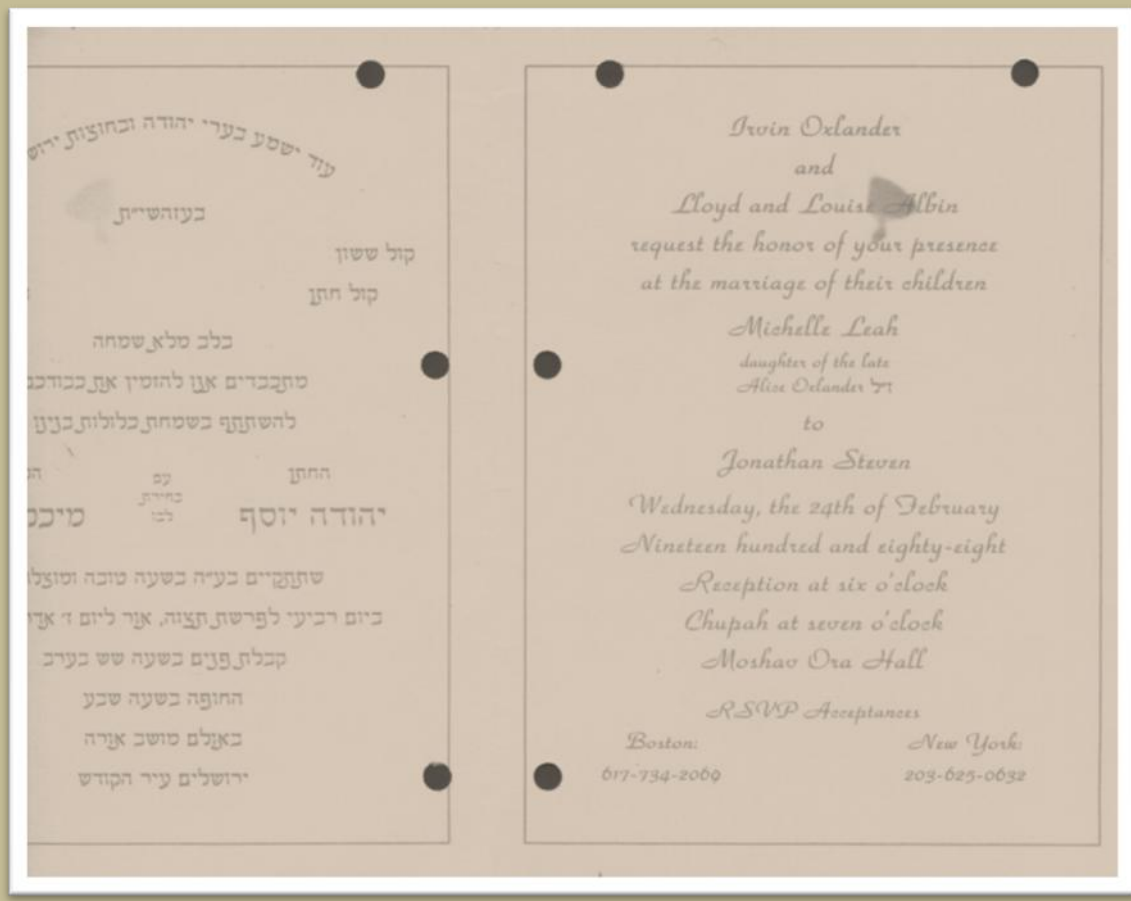 עוד ישמע בערי יהודה ובחוצות
בעזהשי״ת
קול ששון
קול חתן
בלב מלא שמחה
מתכבדים אנו להזמין את
להשתתף בשמחת כלולות בנינו
החתן
עם
בחירת
לבו
יהודה יוסף
שתתקיים בע״ה בשעה טובה
ביום רביעי לפרשת תצוה, אור ליום ז׳
קבלת פנים בשעה שש בערב
החופה בשעה שבע
באולם מושב אורה
ירושלים עיר הקודש
Irvin Orlander
and
Lloyd and Louise Albin
request the honor of your presence
at the marriage of their children
Michelle Leah
daughter of the late
Alice Orlander ז״ל
to
Jonathan Steven
Wednesday, the 24th of February
Nineteen hundred and eighty-eight
Reception at six o'clock
Chupah at seven o'clock
Moshav Ora Hall
RSVP Acceptances
Boston: New York:
617-734-2069 203-625-0632